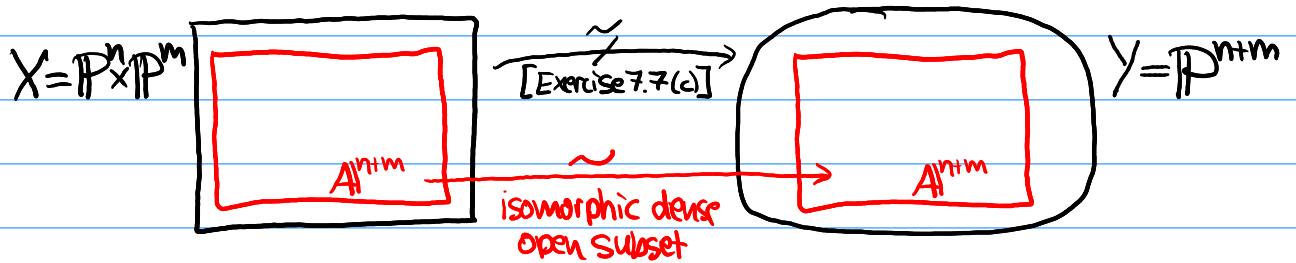 X=ℙⁿ×ℙᵐ
≁
[Exercise 7.7(c)]
Y=ℙⁿ⁺ᵐ
𝔸ⁿ⁺ᵐ
~
𝔸ⁿ⁺ᵐ
isomorphic dense
open subset